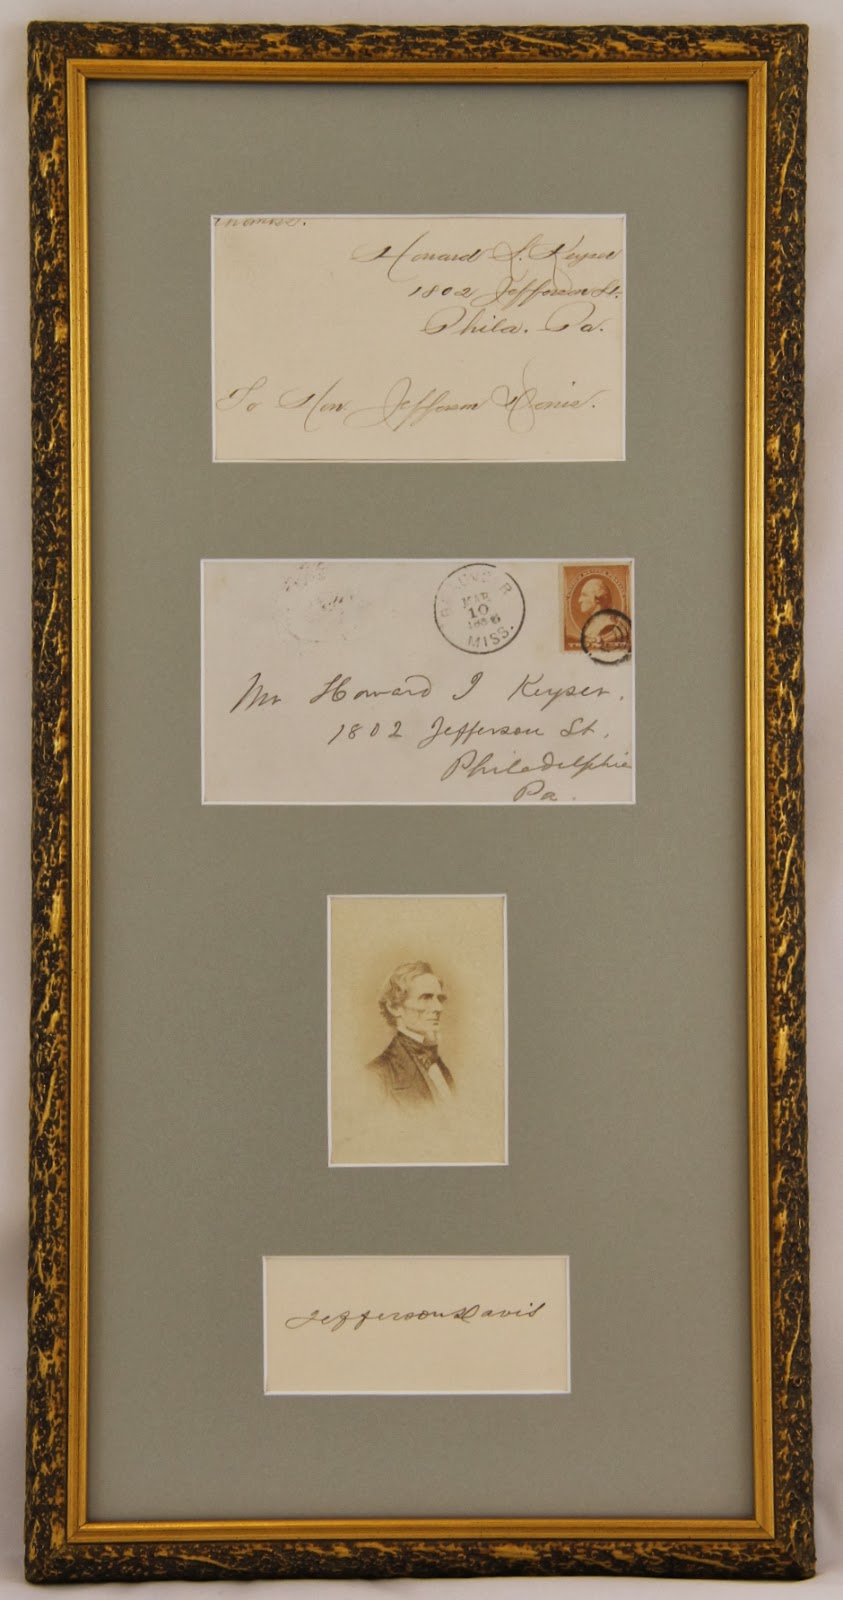 Howard S. Keyser
1802 Jefferson St.
Phila. Pa.
To Hon. Jefferson Davis.
MAR
10
MISS.
Mr Howard I Keyser.
1802 Jefferson St.
Philadelphia
Pa.
Jefferson Davis